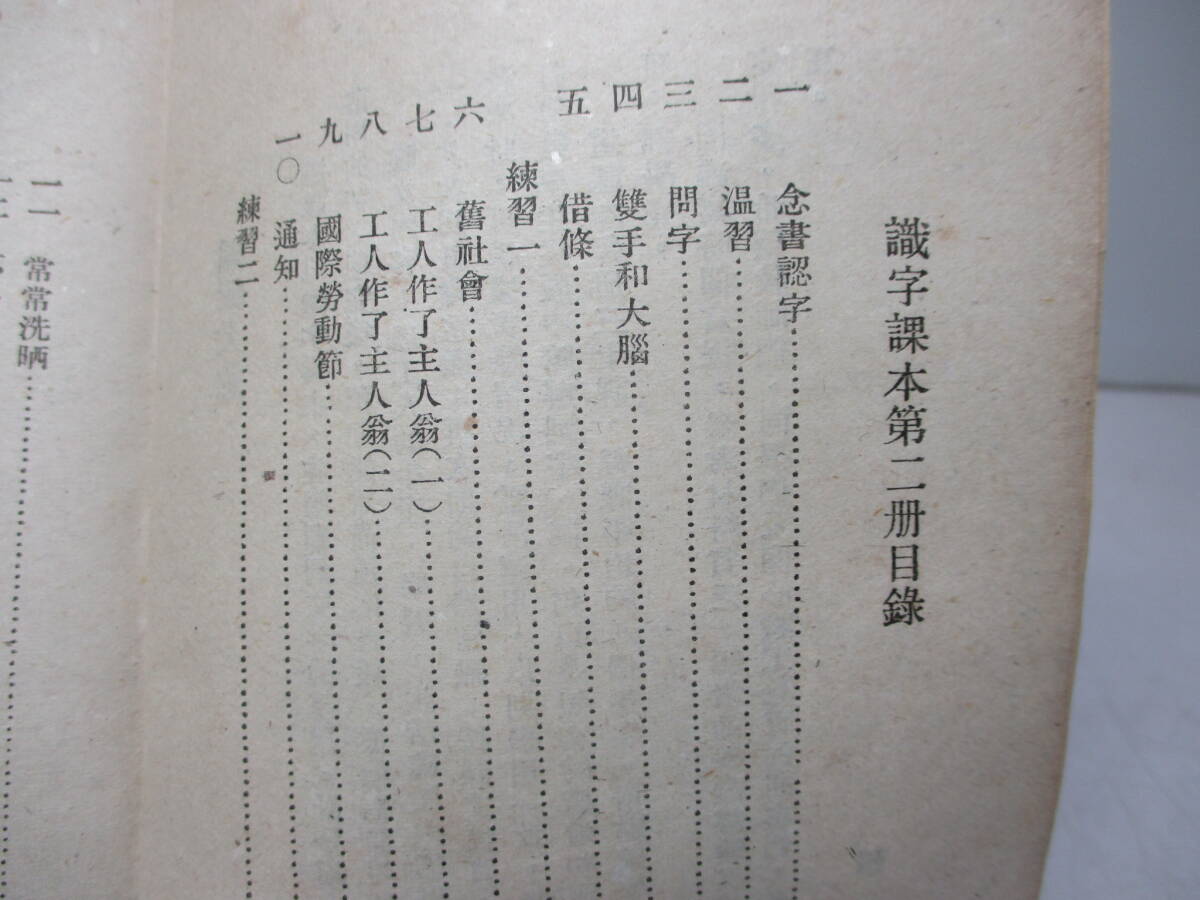 識字課本第二册目錄
一 念書認字
二 温習
三 問字
四 雙手和大腦
五 借條
練習一
六 舊社會
七 工人作了主人翁(一)
八 工人作了主人翁(二)
九 國際勞動節
一〇 通知
練習二
一一 常常洗晒